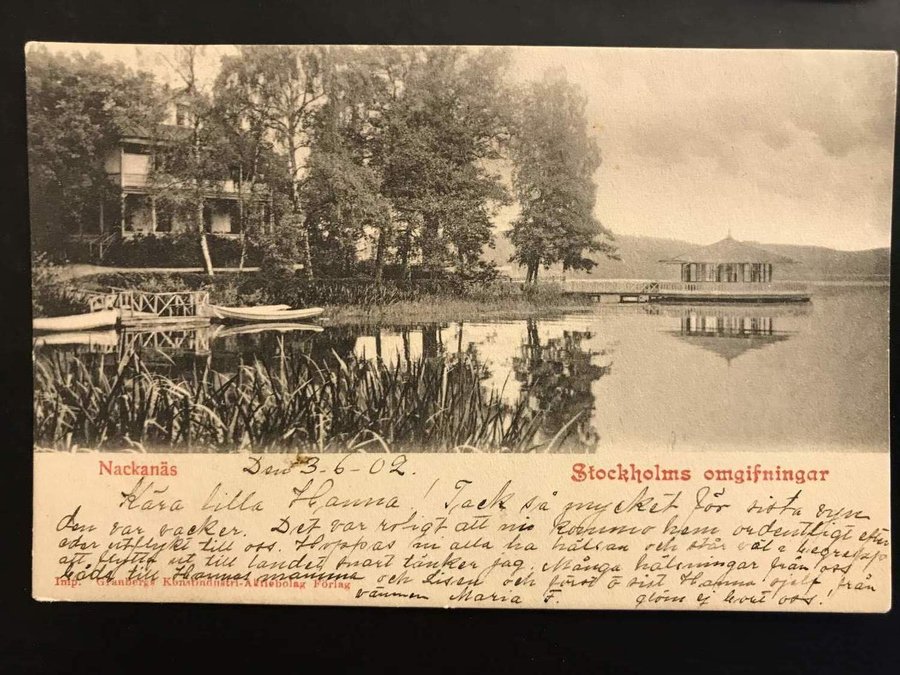 Nackanäs
Den 3-6-02.
Stockholms omgifningar
Kära lilla Hanna! Tack så mycket för sista vyn
den var vacker. Det var roligt att ni kommo hem ordentligt efter
eder utflykt till oss. Hoppas ni alla ha hälsan och står väl
att flytta ut till landet snart tänker jag. Många hälsningar från oss
både till Hannas mamma och Lisen och först o sist Hanna sjelf, från
Imp. Granbergs Konstindustri-Aktiebolag Förlag
vännen Maria F. glöm ej bort oss!